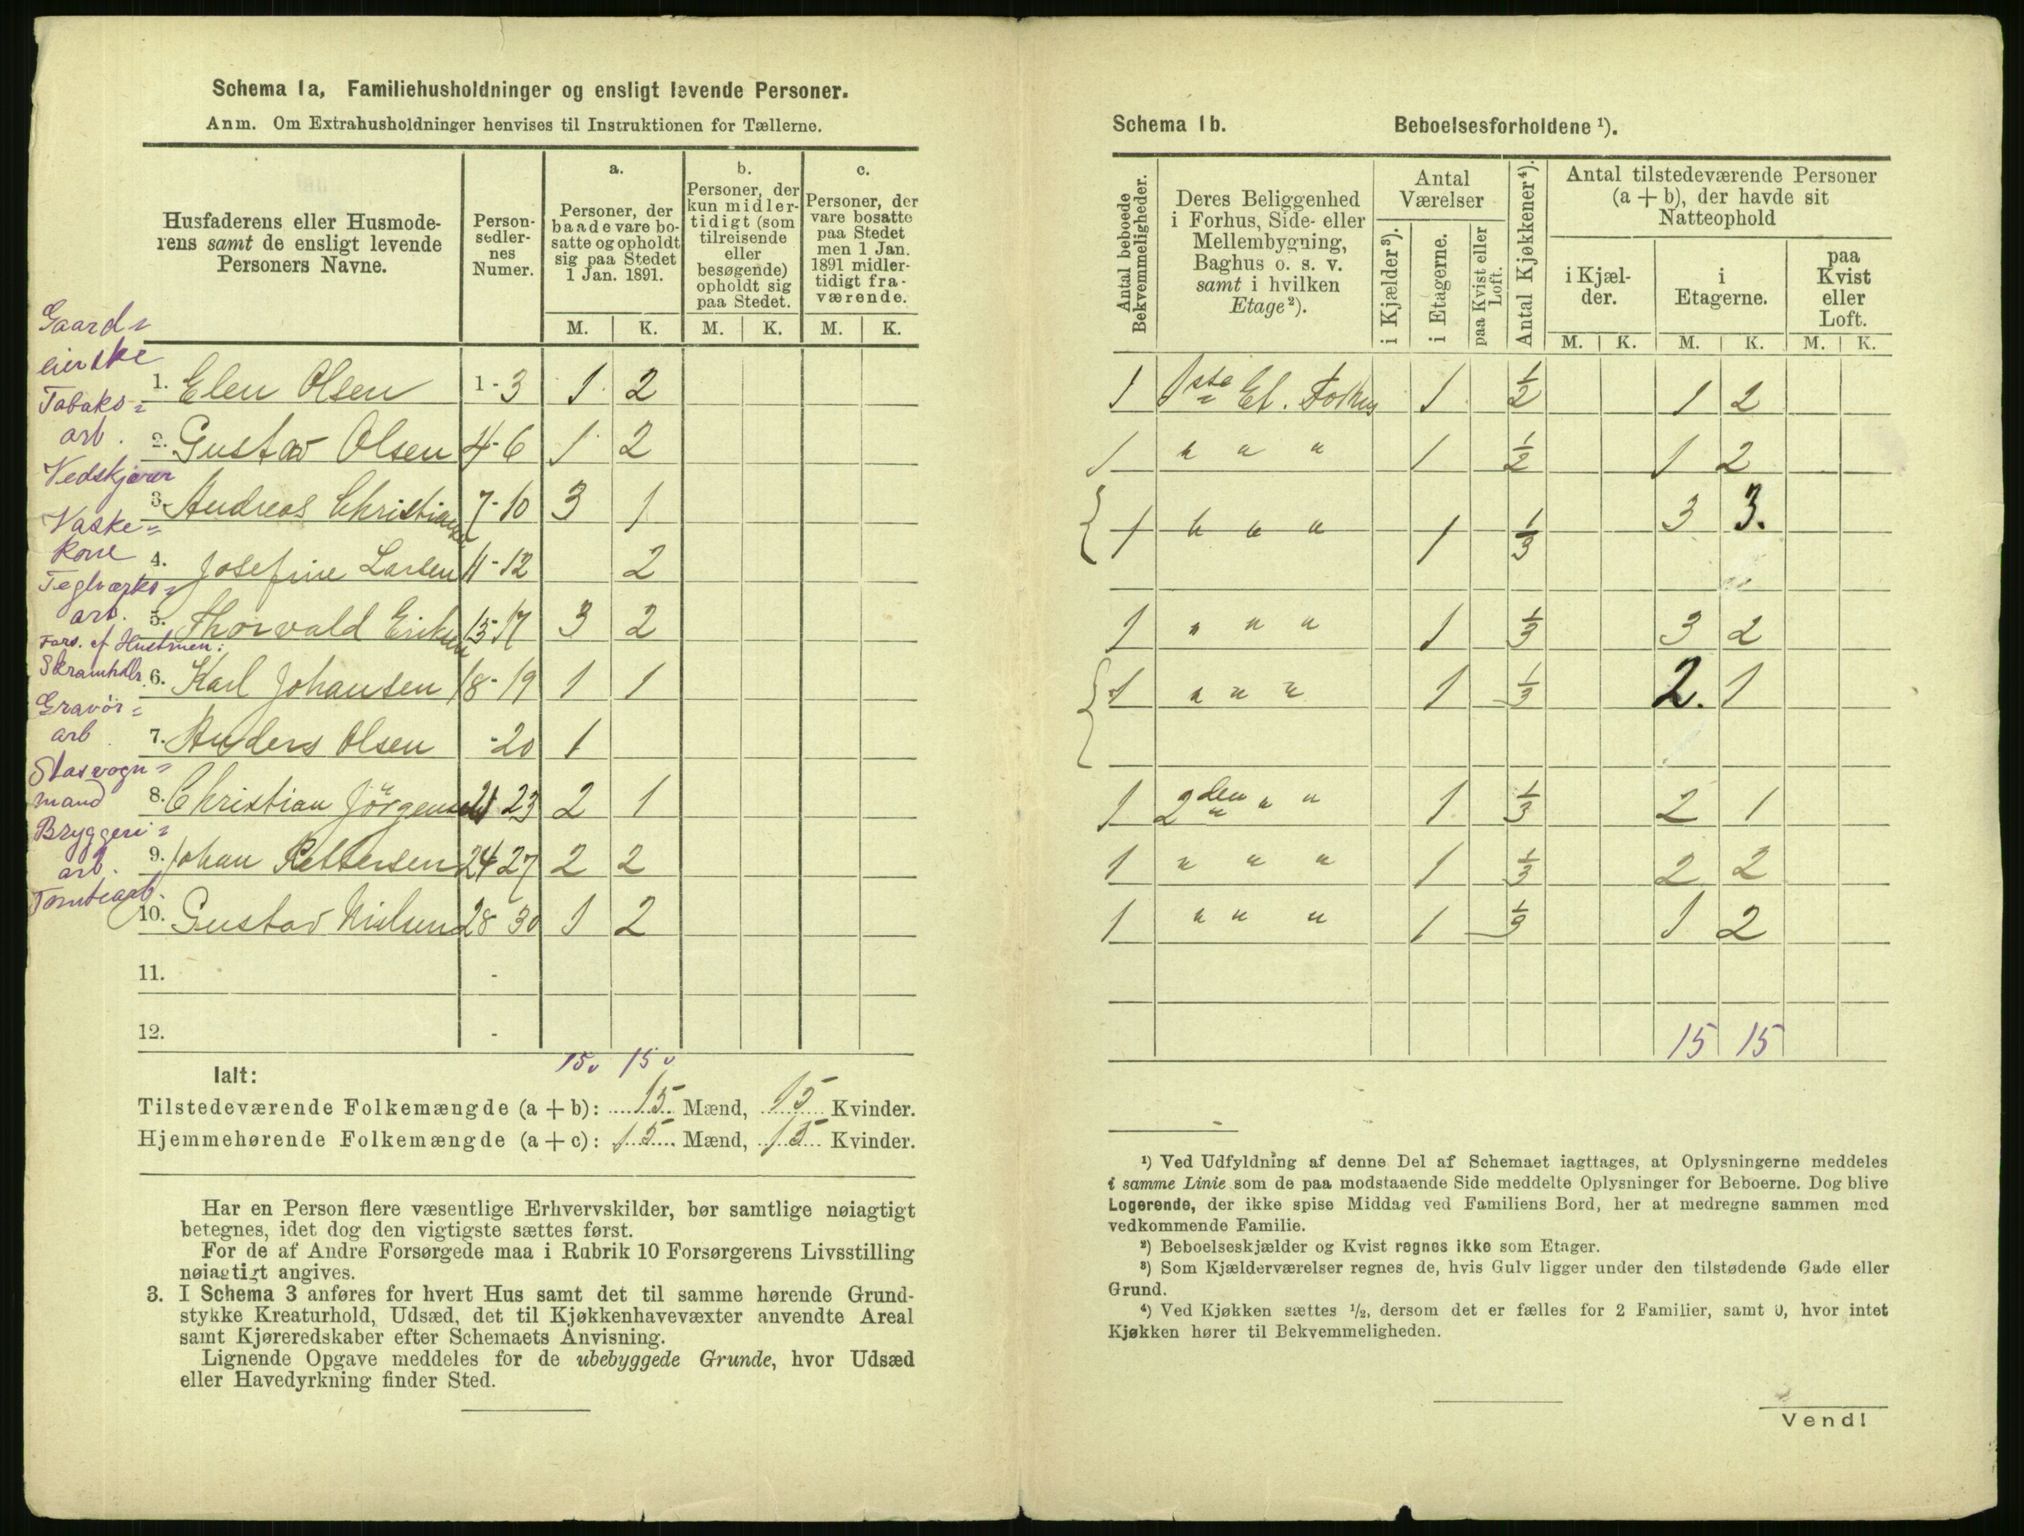 Schema 1a, Familiehusholdninger og ensligt levende Personer.
Anm. Om Extrahusholdninger henvises til Instruktionen for Tællerne.
Husfaderens eller Husmoderens samt de ensligt levende Personers Navne.
Personsedlernes Numer.
a.
Personer, der baade vare bosatte og opholdt sig paa Stedet 1 Jan. 1891.
b.
Personer, der kun midlertidigt (som tilreisende eller besøgende) opholdt sig paa Stedet.
c.
Personer, der vare bosatte paa Stedet men 1 Jan. 1891 midlertidigt fraværende.
M. K. M. K. M. K.
Gaard=
eierske
1. Elen Olsen 1-3 1 2
Tobaks=
arb.
2. Gustav Olsen 4-6 1 2
Vedskjærer
3. Andreas Christiansen 7-10 3 1
Vaske=
kone
4. Josefine Larsen 11-12 2
Teglværks=
arb.
5. Thorvald Eriksen 13-17 3 2
Fors. af Hustruen:
6. Karl Johansen 18-19 1 1
Gravør=
arb
7. Anders Olsen -20 1
mand
8. Christian Jörgensen 21 23 2 1
Bryggeri=
arb.
9. Johan Pettersen 24 27 2 2
Tomtearb.
10. Gustav Nielsen 28 30 1 2
11. -
12. -
15 15
Ialt:
Tilstedeværende Folkemængde (a + b): 15 Mænd, 15 Kvinder.
Hjemmehørende Folkemængde (a + c): 15 Mænd, 15 Kvinder.
Har en Person flere væsentlige Erhvervskilder, bør samtlige nøiagtigt
betegnes, idet dog den vigtigste sættes først.
For de af Andre Forsørgede maa i Rubrik 10 Forsørgerens Livsstilling
nøiagtigt angives.
3. I Schema 3 anføres for hvert Hus samt det til samme hørende Grund-
stykke Kreaturhold, Udsæd, det til Kjøkkenhavevæxter anvendte Areal
samt Kjøreredskaber efter Schemaets Anvisning.
Lignende Opgave meddeles for de ubebyggede Grunde, hvor Udsæd
eller Havedyrkning finder Sted.
Schema 1b. Beboelsesforholdene ¹).
Antal beboede Bekvemmeligheder.
Deres Beliggenhed i Forhus, Side- eller Mellembygning, Baghus o. s. v. samt i hvilken Etage²).
Antal Værelser
i Kjælder³).
i Etagerne.
paa Kvist eller Loft.
Antal Kjøkkener⁴).
Antal tilstedeværende Personer (a + b), der havde sit Natteophold
i Kjælder.
i Etagerne.
paa Kvist eller Loft.
M. K. M. K. M. K.
1 1ste Et. Forhus 1 ½ 1 2
1 " " " 1 ½ 1 2
1 " " " 1 ⅓ 3 3.
1 " " " 1 ⅓ 3 2
1 " " " 1 ⅓ 2. 1
1 2den " " 1 ⅓ 2 1
1 " " " 1 ⅓ 2 2
1 " " " 1 ⅓ 1 2
15 15
¹) Ved Udfyldning af denne Del af Schemaet iagttages, at Oplysningerne meddeles
i samme Linie som de paa modstaaende Side meddelte Oplysninger for Beboerne. Dog blive
Logerende, der ikke spise Middag ved Familiens Bord, her at medregne sammen med
vedkommende Familie.
²) Beboelseskjælder og Kvist regnes ikke som Etager.
³) Som Kjælderværelser regnes de, hvis Gulv ligger under den tilstødende Gade eller
Grund.
⁴) Ved Kjøkken sættes ½, dersom det er fælles for 2 Familier, samt 0, hvor intet
Kjøkken hører til Bekvemmeligheden.
Vend!